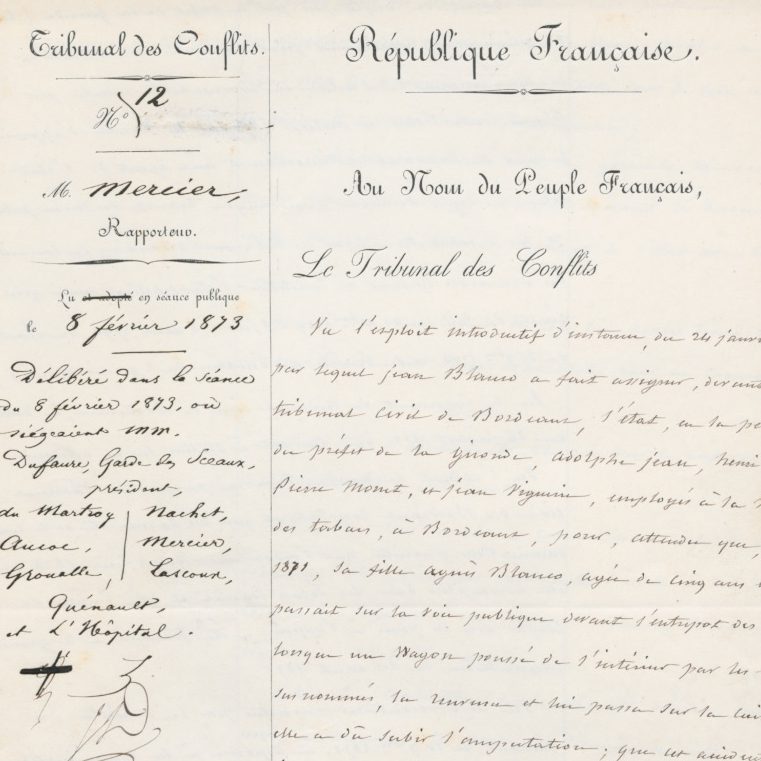 Tribunal des Conflits.
N° 12
M. Mercier,
Rapporteur.
Lu et adopté en séance publique
le 8 février 1873
Délibéré dans la séance
du 8 février 1873, où
siégeaient MM.
Dufaure, Garde des Sceaux,
président,
du Martroy Nachet,
Aucoc, Mercier,
Groualle, Lascoux,
Guénault,
et L'Hôpital.
République Française.
Au Nom du Peuple Français,
Le Tribunal des Conflits
Vu l'exploit introductif d'instance, du 24 janv
par lequel jean Blanco a fait assigner, devant
tribunal civil de Bordeaux, l'état, en la pe
du préfet de la gironde, adolphe jean, henri
Pierre Monet, et jean Viguerie, employés à la
des tabacs, à Bordeaux, pour, attendu que,
1871, sa fille agnès Blanco, agée de cinq ans
passait sur la voie publique devant l'entrepot des
lorsque un wagon poussé de l'intérieur par les
susnommés, la renversa et lui passa sur la cui
elle a dû subir l'amputation; que cet accid